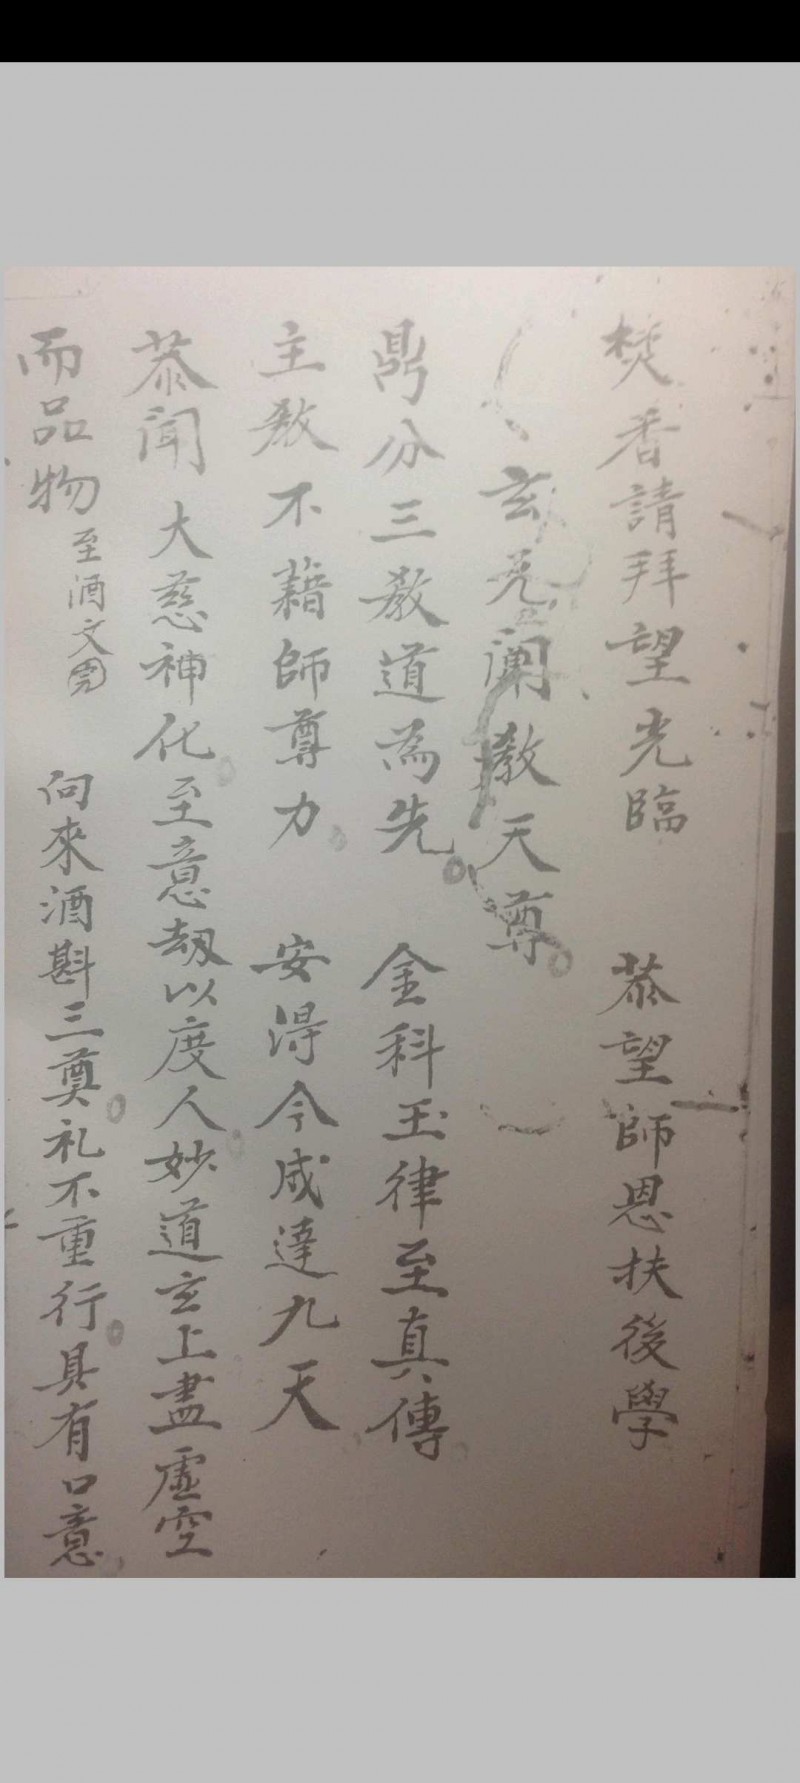 焚香請拜望光臨　恭望師恩扶後學
玄元闡教天尊
鼎分三教道為先　金科玉律至真傳
主教不藉師尊力　安得今成達九天
恭聞大慈神化至意劫以度人妙道玄上盡虛空
而品物至酒文完　向來酒斟三奠礼不重行具有口意